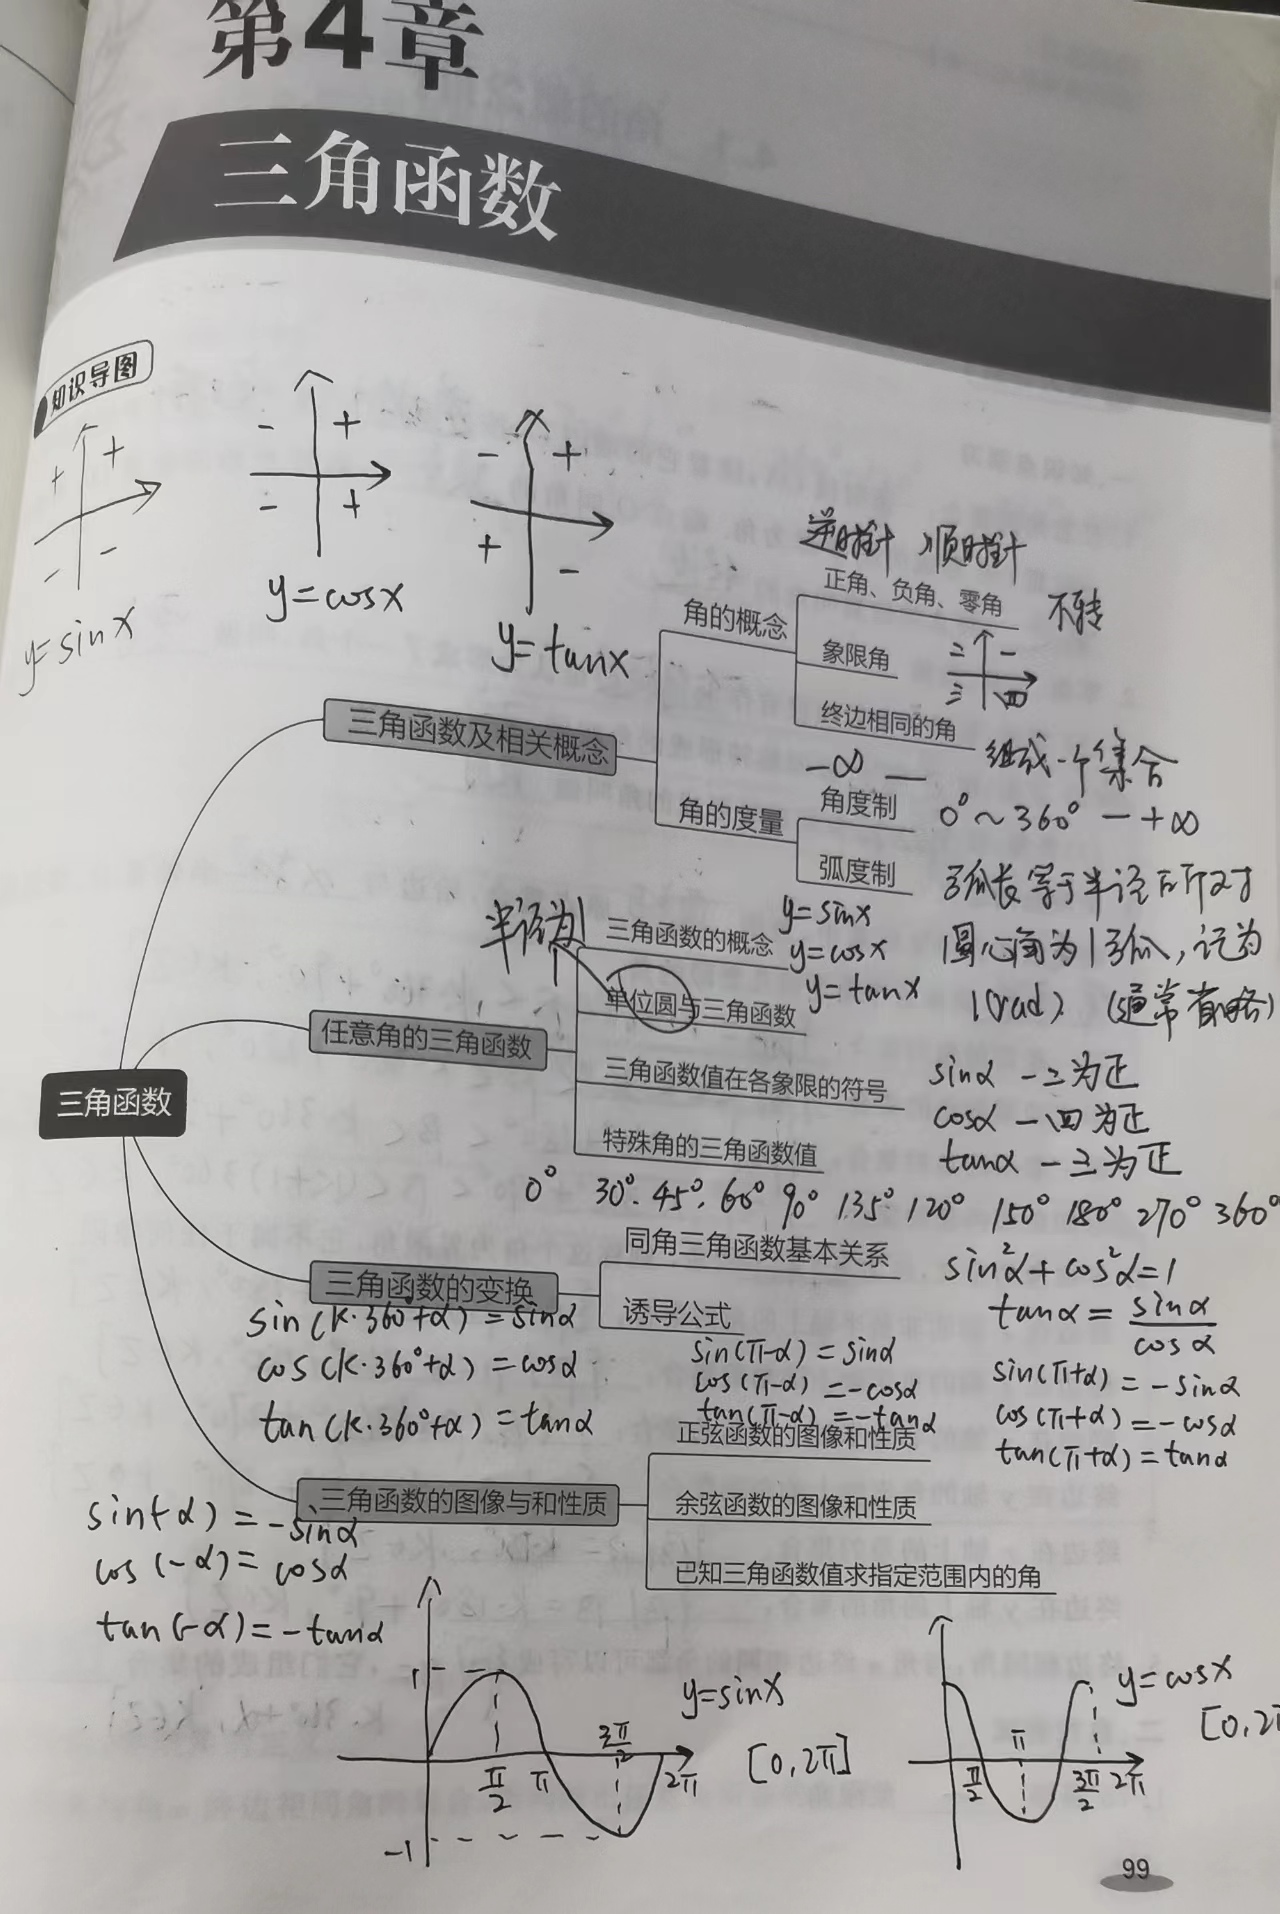 第4章
三角函数
知识导图
+ +
- -
y=sinx
- +
- +
y=cosx
- +
+ -
y=tanx
逆时针 顺时针
正角、负角、零角
不转
角的概念
象限角
二 一
三 四
终边相同的角
组成一个集合
三角函数及相关概念
-∞ —
角的度量
角度制
0°~360° — +∞
弧度制
弧长等于半径所对
圆心角为1弧,记为
1(rad) (通常省略)
半径为1
三角函数的概念
y=sinx
y=cosx
y=tanx
单位圆与三角函数
任意角的三角函数
三角函数值在各象限的符号
sinα 一二为正
cosα 一四为正
tanα 一三为正
特殊角的三角函数值
0° 30°. 45°. 60° 90° 135° 120° 150° 180° 270° 360°
三角函数
同角三角函数基本关系
sin²α+cos²α=1
tanα=sinα/cosα
三角函数的变换
诱导公式
sin(k·360°+α)=sinα
cos(k·360°+α)=cosα
tan(k·360°+α)=tanα
sin(π-α)=sinα
cos(π-α)=-cosα
tan(π-α)=-tanα
sin(π+α)=-sinα
cos(π+α)=-cosα
tan(π+α)=tanα
正弦函数的图像和性质
、三角函数的图像与和性质
余弦函数的图像和性质
已知三角函数值求指定范围内的角
sin(-α)=-sinα
cos(-α)=cosα
tan(-α)=-tanα
1
π/2 π 3π/2 2π
-1
y=sinx
[0,2π]
π/2 π 3π/2 2π
y=cosx
[0,2π
99